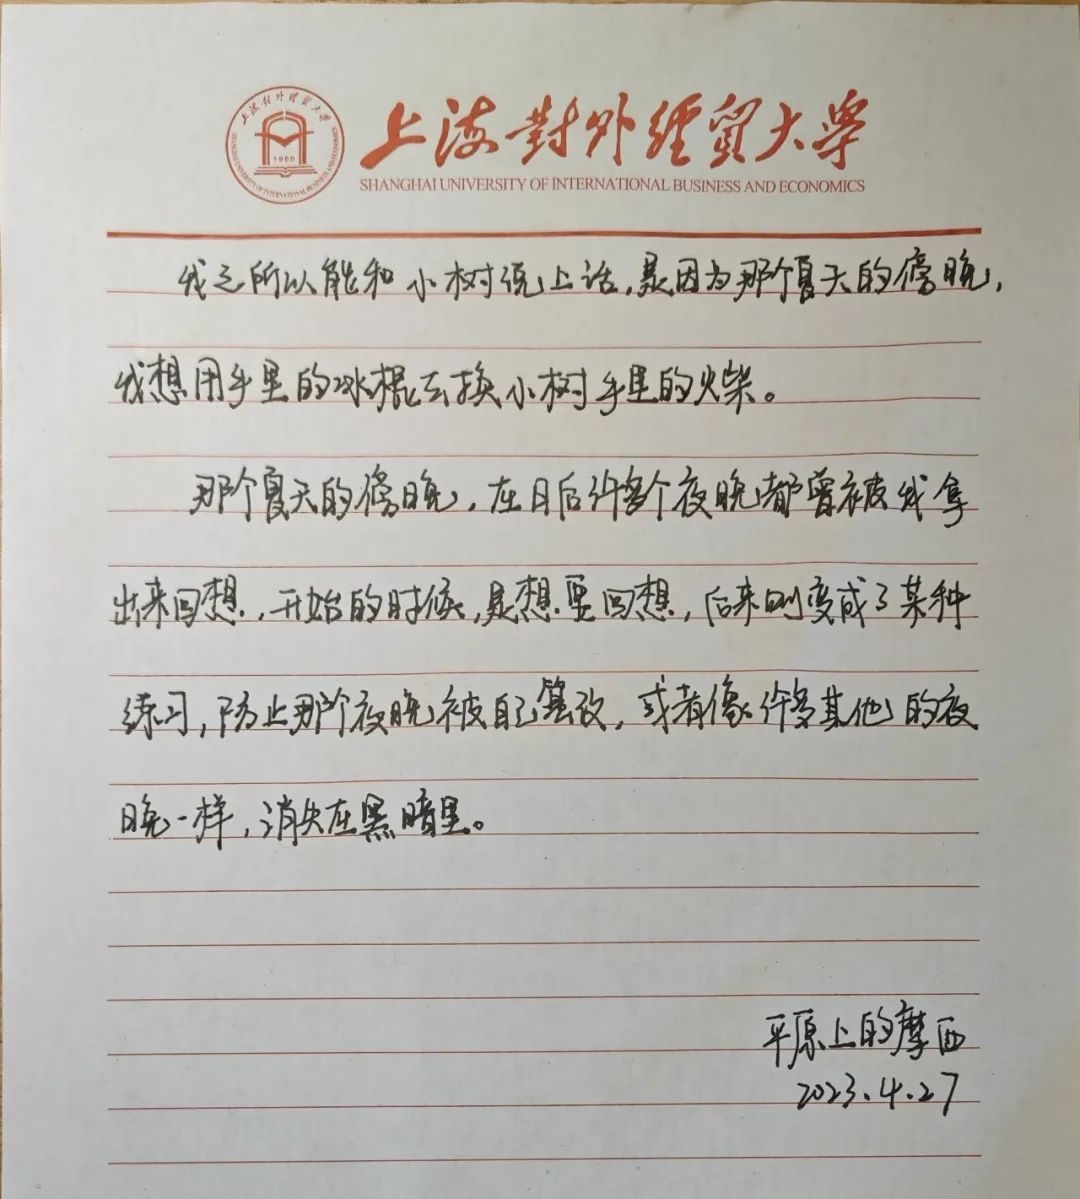 上海對外經貿大學
1960
SHANGHAI UNIVERSITY OF INTERNATIONAL BUSINESS AND ECONOMICS
上海對外經貿大學
SHANGHAI UNIVERSITY OF INTERNATIONAL BUSINESS AND ECONOMICS
我之所以能和小树说上话,是因为那个夏天的傍晚,
我想用手里的冰棍去换小树手里的火柴。
那个夏天的傍晚,在日后许多个夜晚都曾被我拿
出来回想,开始的时候,是想要回想,后来则变成了某种
练习,防止那个夜晚被自己篡改,或者像许多其他的夜
晚一样,消失在黑暗里。
平原上的摩西
2023.4.27